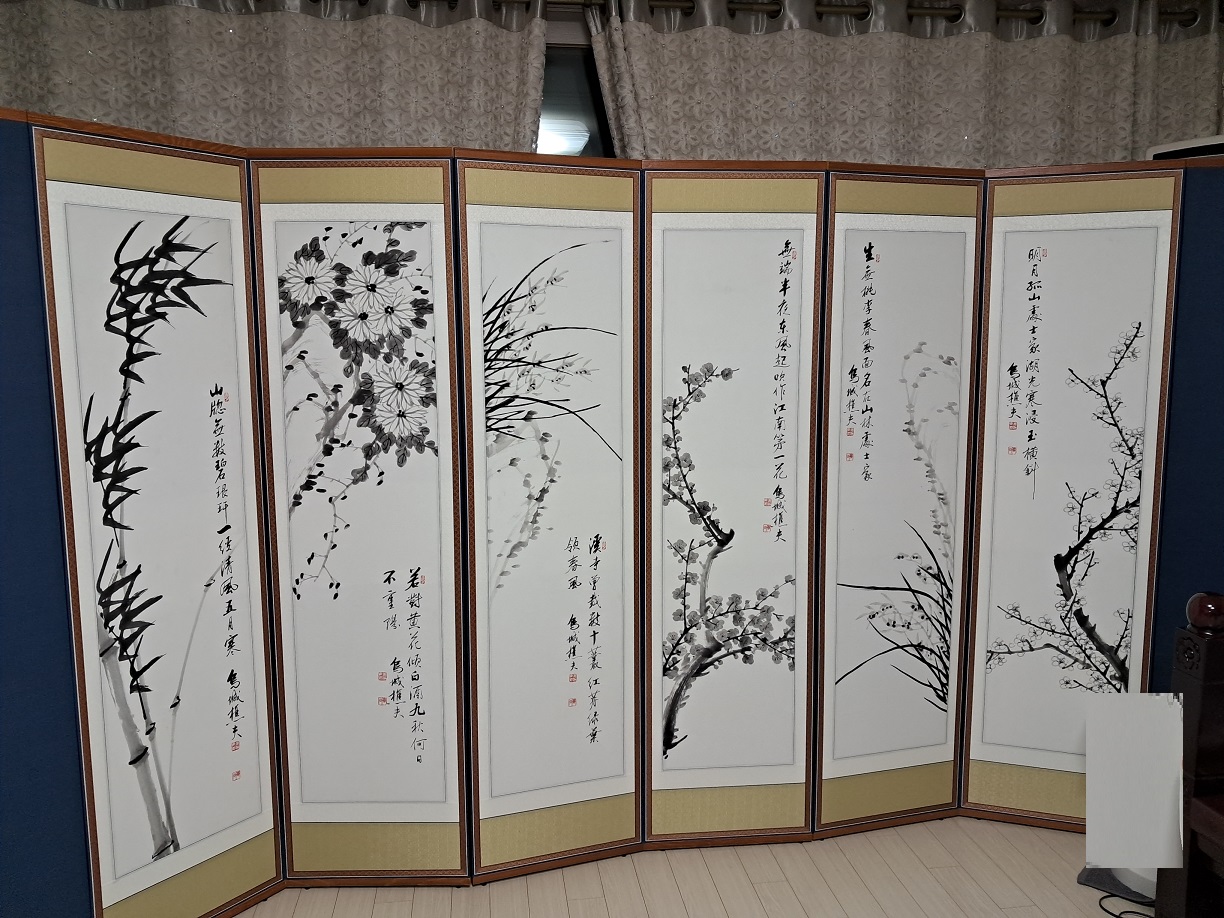 明月孤山處士家湖光寒浸玉橫斜
烏城樵夫
生無桃李春風面名在山林處士家
烏城樵夫
無端半夜东風起吹作江南第一花 烏城樵夫
溪寺曾栽數十叢紅芽綠葉
領春風 烏城樵夫
若對黃花傾白酒九秋何日
不重陽 烏城樵夫
山牕無數碧琅玕一徑清風五月寒 烏城樵夫